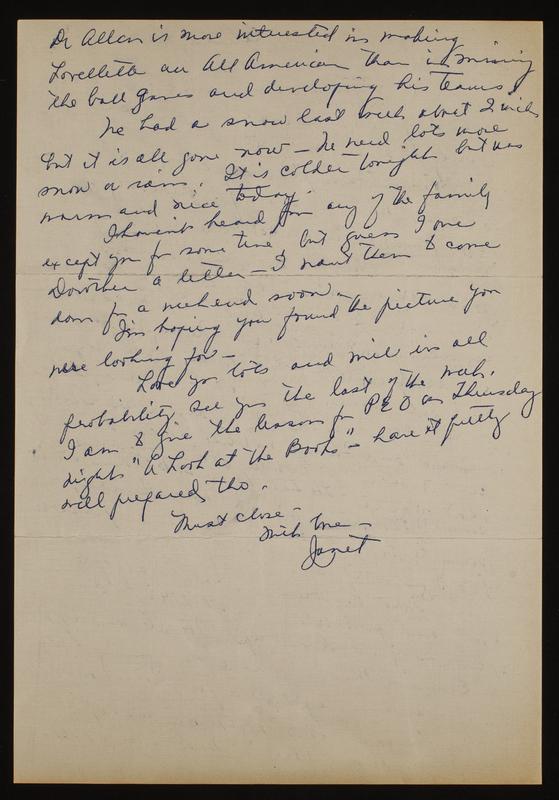 Dr Allen is more interested in making
Lovellette an All American than in winning
the ball games and developing his teams.
We had a snow last week about 2 inches
but it is all gone now - We need lots more
snow or rain. It is colder tonight but was
warm and nice today.
I haven't heard from any of the family
except you for some time, but guess I owe
Dorothea a letter - I want them to come
down for a weekend soon -
I'm hoping you found the picture you
were looking for -
Love you lots and will in all
probability see you the last of the week.
I am to give the lesson for PEO on Thursday
night "A Look at the Books" - have it pretty
well prepared tho.
Must close -
With love -
Janet